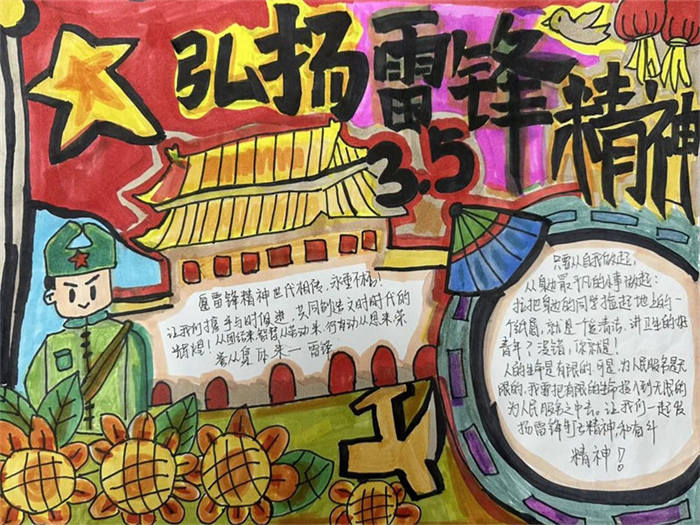 弘扬雷锋精神
3.5
愿雷锋精神世代相传，永垂不朽！
让我们携手与时俱进，共同创造义时时代的
辉煌！从团结来智慧从劳动来行有动从思来荣
誉从集体来一雷锋
只要从自我做起，
从身边最平凡的事做起：
拾把身边的同学捡起地上的一
个纸屑，就是一位清洁、讲卫生的好
青年？没错，你就是！
人的生命是有限的可是，为人民服务是无
限的，我要把有限的生命投入到无限的
为人民服务之中去。让我们一起发
扬雷锋钉子精神，和奋斗
精神！